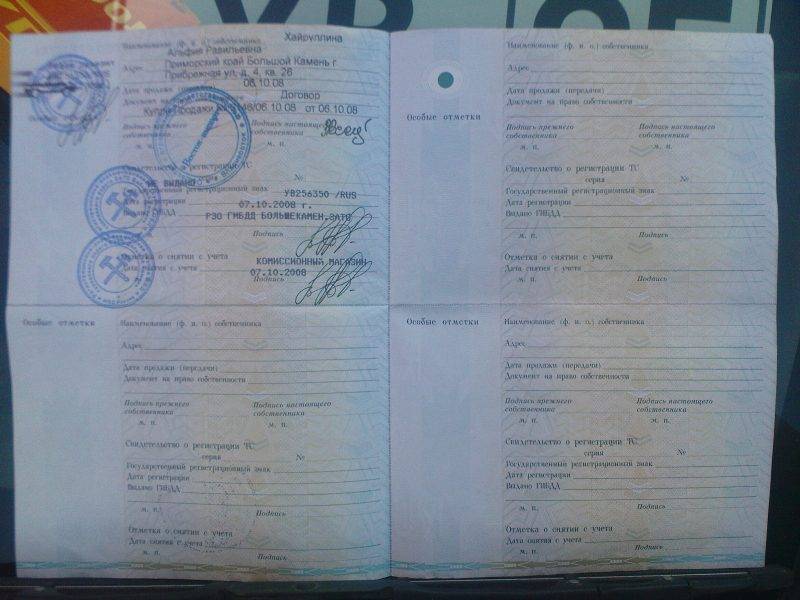 Хайруллина
Наименование (ф. и. о.) собственника
Альфия Равильевна
Адрес Приморский край Большой Камень г
Прибрежная ул, д. 4, кв. 26
Дата продажи 06.10.08
Договор
Документ на
Купли-Продажи 06.10.08 от 06.10.08
Подпись прежнего собственника
Подпись настоящего собственника
м. п.
Свидетельство о регистрации ТС
НЕ ВЫДАНО №
Государственный регистрационный знак УВ256350 /RUS
Дата регистрации 07.10.2008 г.
Выдано ГИБДД РЭО ГИБДД БОЛЬШЕКАМЕН.ЗАТО
Подпись
Отметка о снятии с учета КОМИССИОННЫЙ МАГАЗИН
Дата снятия с учета 07.10.2008
Подпись
Наименование (ф. и. о.) собственника
Адрес
Дата продажи (передачи)
Документ на право собственности
Особые отметки
Подпись прежнего собственника
Подпись настоящего собственника
м. п. м. п.
Свидетельство о регистрации ТС
серия №
Государственный регистрационный знак
Дата регистрации
Выдано ГИБДД
м. п. Подпись
Отметка о снятии с учета
Дата снятия с учета
м. п. Подпись
Особые отметки
Наименование (ф. и. о.) собственника
Адрес
Дата продажи (передачи)
Документ на право собственности
Подпись прежнего собственника
Подпись настоящего собственника
м. п. м. п.
Свидетельство о регистрации ТС
серия №
Государственный регистрационный знак
Дата регистрации
Выдано ГИБДД
м. п. Подпись
Отметка о снятии с учета
Дата снятия с учета
м. п. Подпись
Особые отметки
Наименование (ф. и. о.) собственника
Адрес
Дата продажи (передачи)
Документ на право собственности
Подпись прежнего собственника
Подпись настоящего собственника
м. п. м. п.
Свидетельство о регистрации ТС
серия №
Государственный регистрационный знак
Дата регистрации
Выдано ГИБДД
м. п. Подпись
Отметка о снятии с учета
Дата снятия с учета
м. п. Подпись